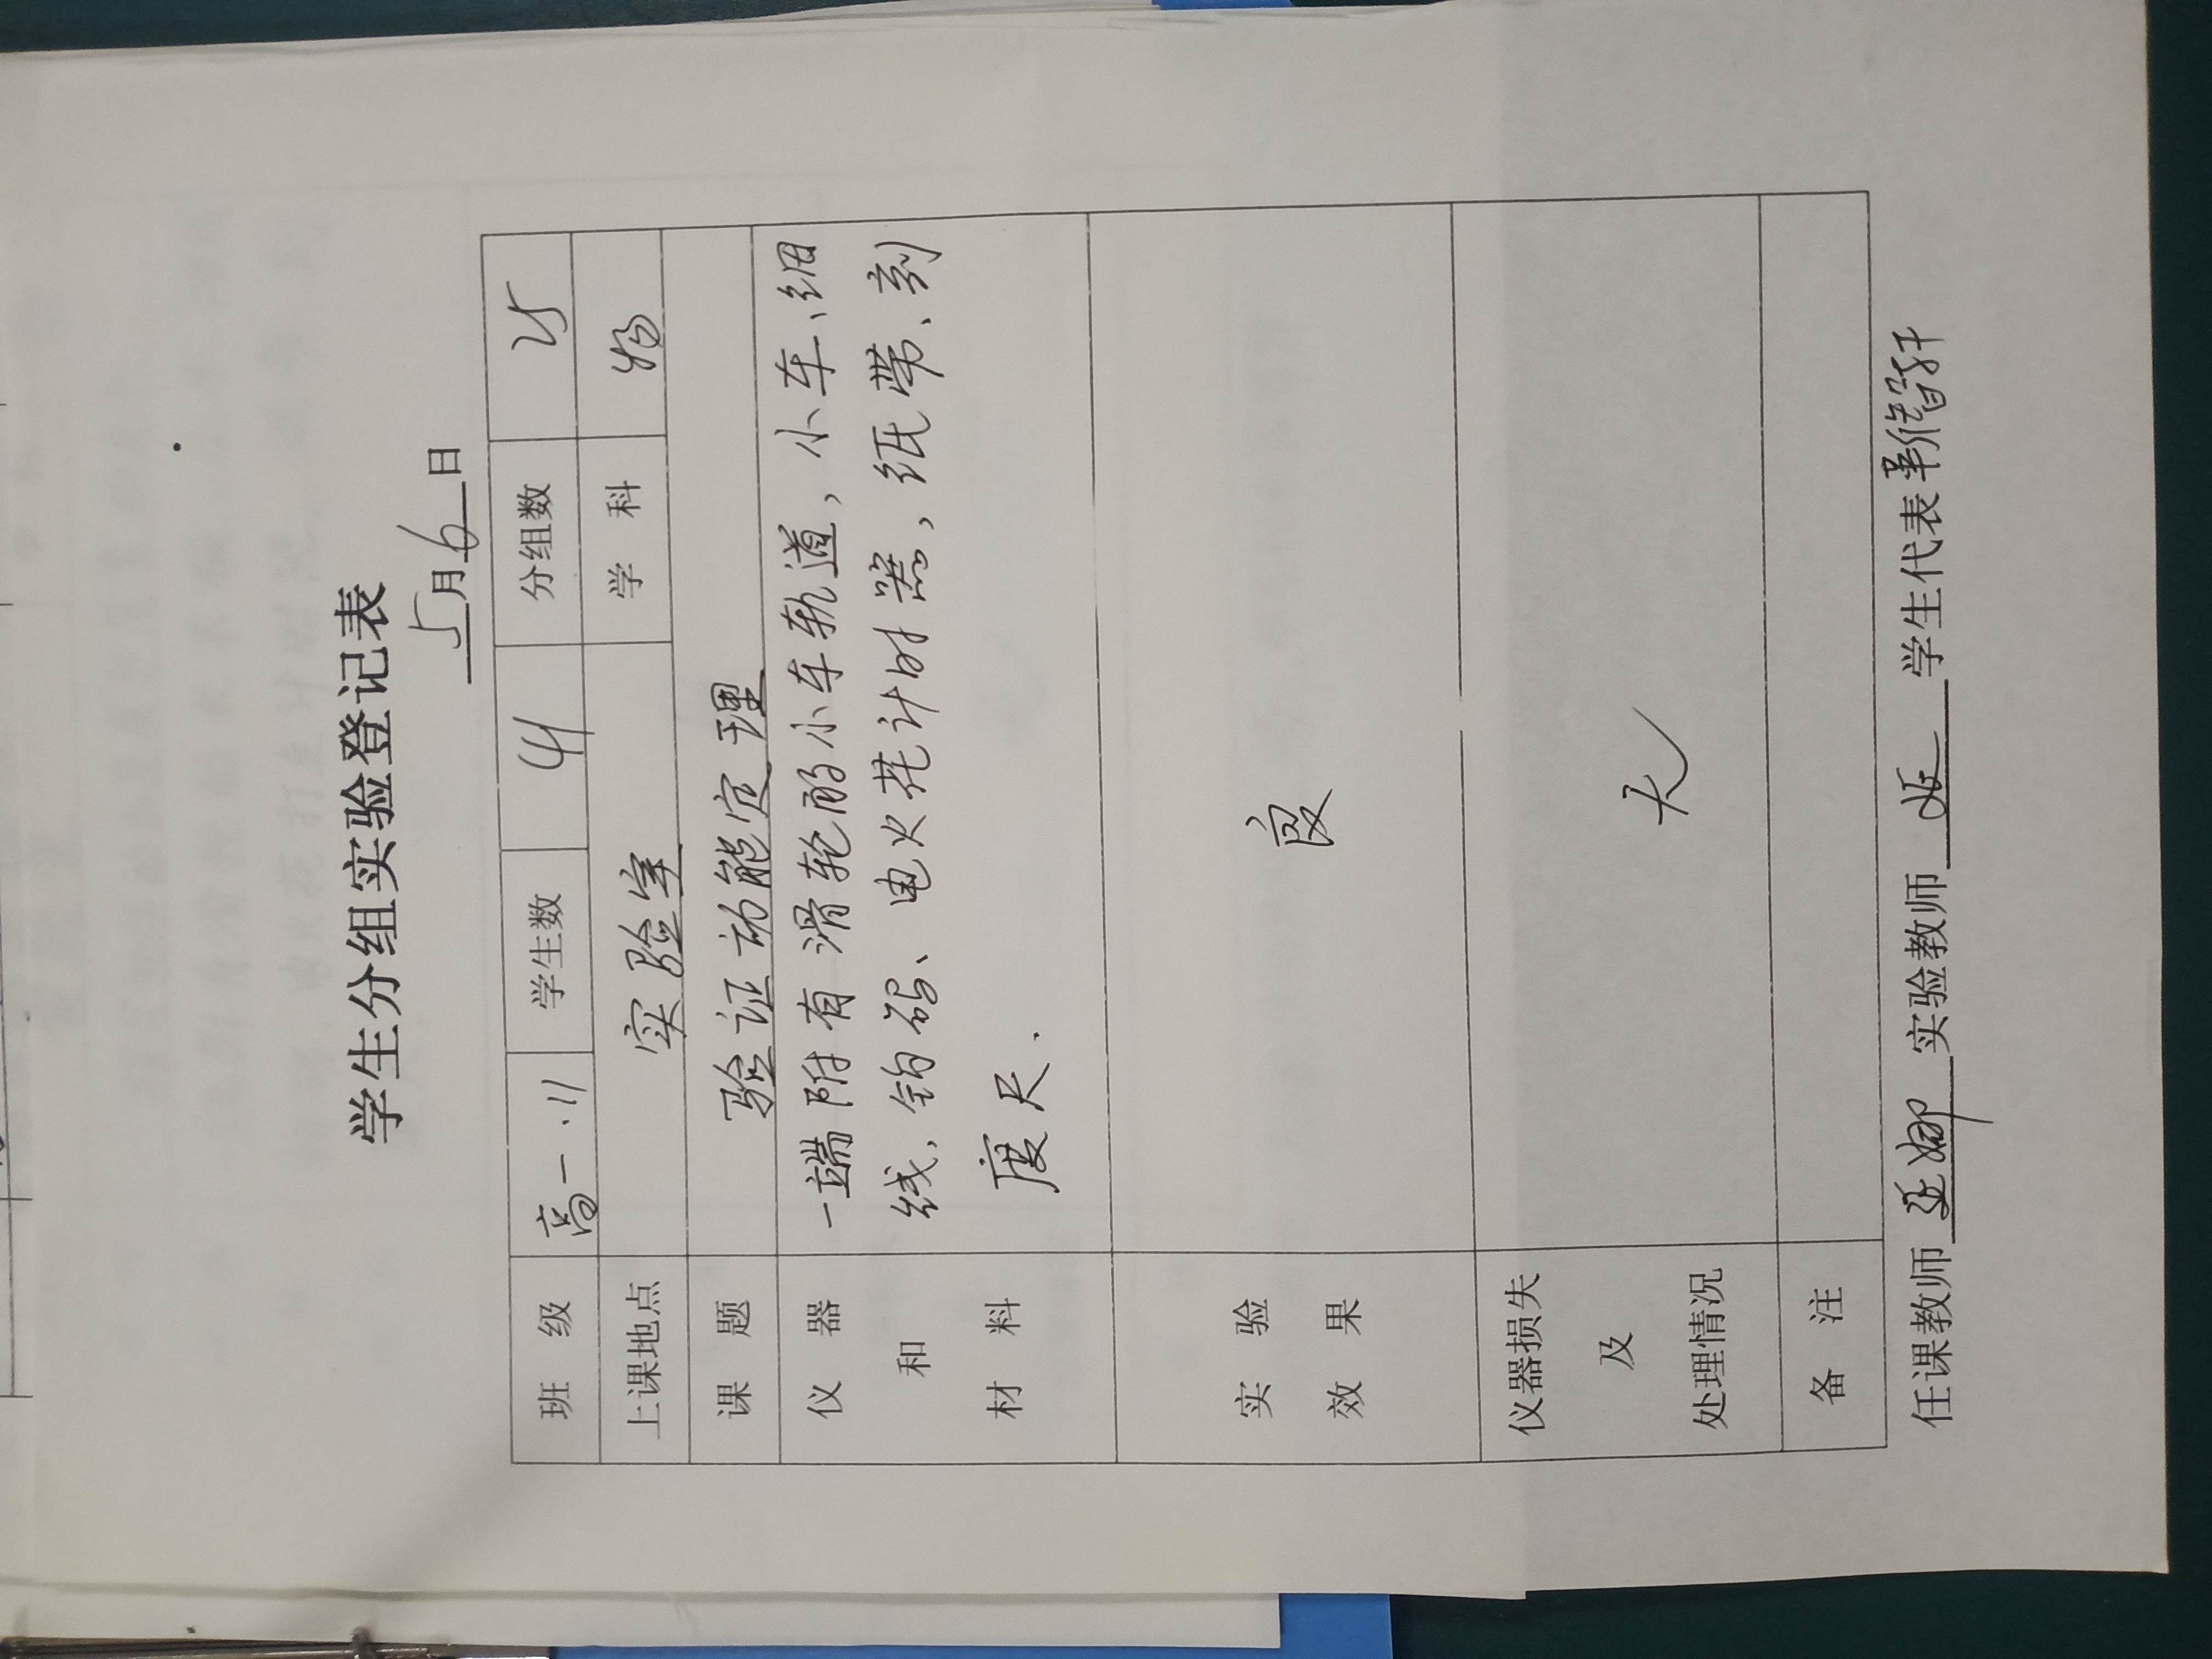 学生分组实验登记表
5月6日
班级 高一.11 学生数 41 分组数 25
上课地点 实验室 学科 物
课题 验证动能定理
仪器和材料 一端附有滑轮的小车轨道，小车、细
线、钩码、电火花计时器，纸带、刻
度尺.
实验效果 良
仪器损失及处理情况 无
备注
任课教师 实验教师 学生代表